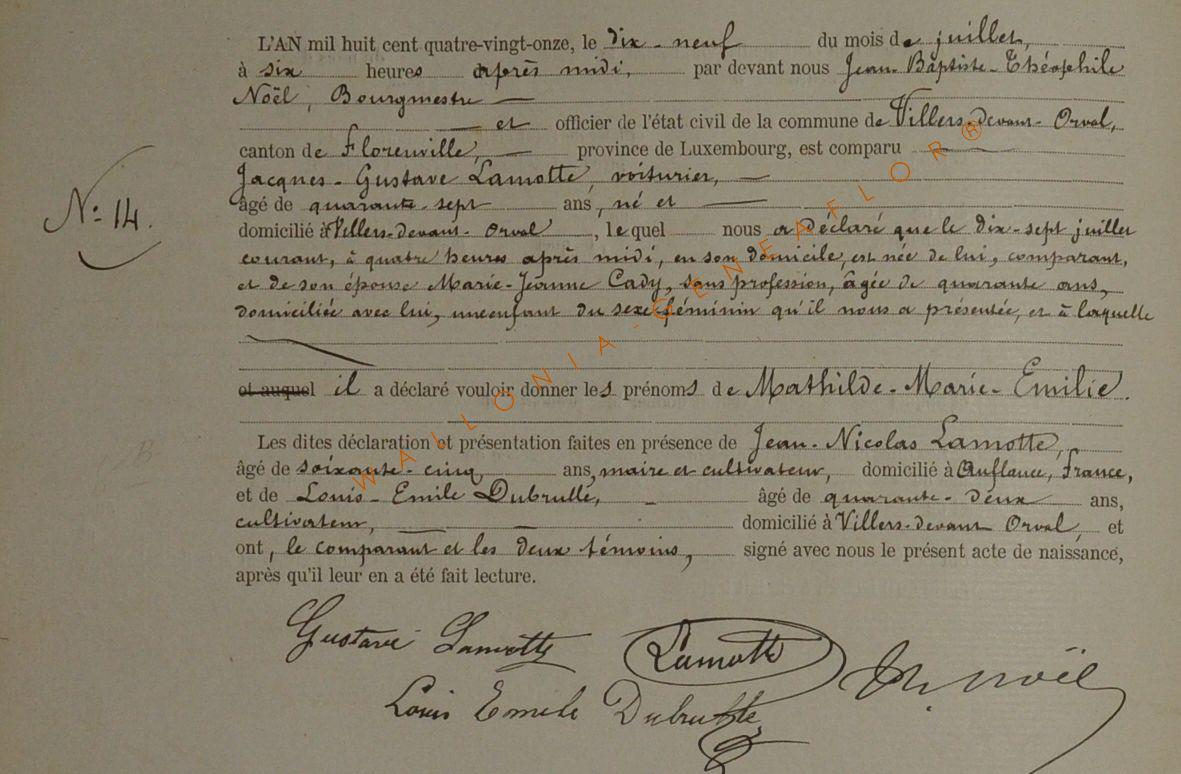 L'AN mil huit cent quatre-vingt-onze, le dix-neuf du mois de juillet,
à six heures après midi, par devant nous Jean-Baptiste-Théophile
Noël, Bourgmestre
et officier de l'état civil de la commune de Villers-devant-Orval,
canton de Florenville, province de Luxembourg, est comparu
Jacques-Gustave Lamotte, voiturier,
N° 14.
âgé de quarante-sept ans, né et
domicilié à Villers-devant-Orval, lequel nous a déclaré que le dix-sept juillet
courant, à quatre heures après midi, en son domicile, est née de lui, comparant,
et de son épouse Marie-Jeanne Cady, sans profession, âgée de quarante ans,
domiciliée avec lui, une enfant du sexe féminin qu'il nous a présentée, et à laquelle
et auquel il a déclaré vouloir donner les prénoms de Mathilde-Marie-Emilie.
Les dites déclaration et présentation faites en présence de Jean-Nicolas Lamotte,
âgé de soixante-cinq ans, maire et cultivateur, domicilié à Auflance, France,
et de Louis-Emile Dubrulle, âgé de quarante-deux ans,
cultivateur, domicilié à Villers-devant Orval, et
ont, le comparant et les deux témoins, signé avec nous le présent acte de naissance,
après qu'il leur en a été fait lecture.
Gustave Lamotte Lamotte Th. Noël
Louis Emile Dubrulle
WALLONIA-GENEAFLOR®